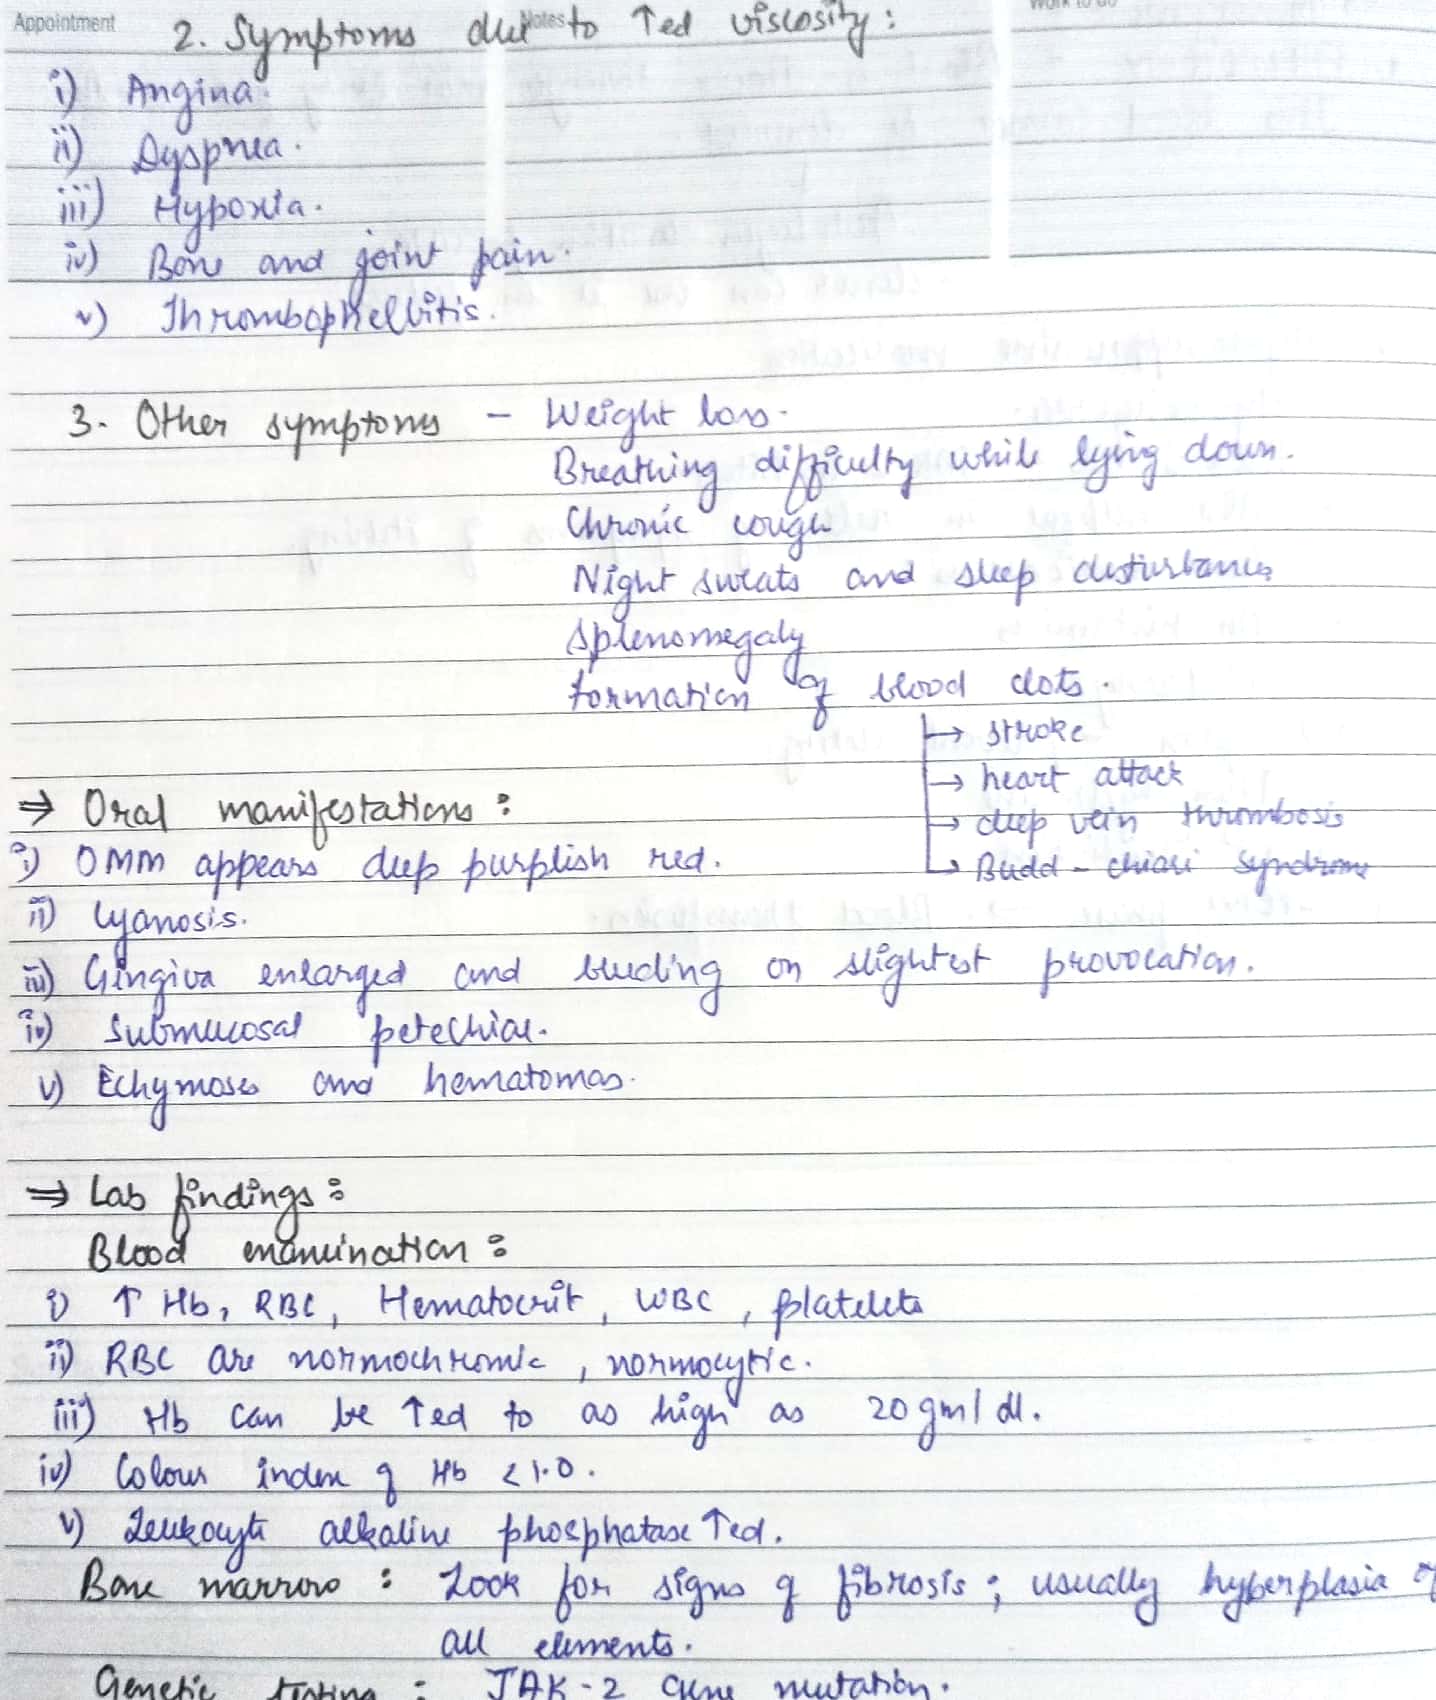 Appointment
Notes
Work to do
2. Symptoms due to ↑ed viscosity:
i) Angina.
ii) Dyspnea.
iii) Hypoxia.
iv) Bone and joint pain.
v) Thrombophelbitis.
3. Other symptoms - Weight loss.
Breathing difficulty while lying down.
Chronic cough
Night sweats and sleep disturbances
Splenomegaly
formation of blood clots.
→ stroke
→ heart attack
→ deep vein thrombosis
→ Budd-chiari syndrome
⇒ Oral manifestations:
i) OMM appears deep purplish red.
ii) Cyanosis.
iii) Gingiva enlarged and bleeding on slightest provocation.
iv) Submucosal petechiae.
v) Echymoses and hematomas.
⇒ Lab findings:
Blood examination:
i) ↑ Hb, RBC, Hematocrit, WBC, platelets
ii) RBC are normochromic, normocytic.
iii) Hb can be ↑ed to as high as 20 gm/dl.
iv) Colour index of Hb <1.0.
v) Leukocyte alkaline phosphatase ↑ed.
Bone marrow: Look for signs of fibrosis; usually hyperplasia of
all elements.
Genetic testing: JAK-2 gene mutation.